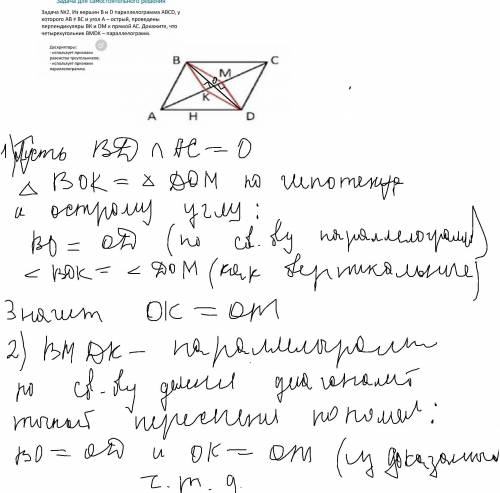 Задача для самостоятельного решения
Задача №2. Из вершин B и D параллелограмма ABCD, у
которого AB ≠ BC и угол A – острый, проведены
перпендикуляры BK и DM к прямой AC. Докажите, что
четырехугольник BMDK – параллелограмм.
Дескрипторы:
- использует признаки
равенства треугольников;
- использует признаки
параллелограмма.
B C
M
O
K
A H D
1) Пусть BD ∩ AC = O
△ BOK = △ DOM по гипотенузе
и острому углу:
BO = OD (по св-ву параллелограмма)
∠ BOK = ∠ DOM (как вертикальные)
Значит OK = OM
2) BMDK – параллелограмм
по св-ву деления диагоналей
точкой пересечения пополам:
BO = OD и OK = OM (из доказанного)
ч. т. д.